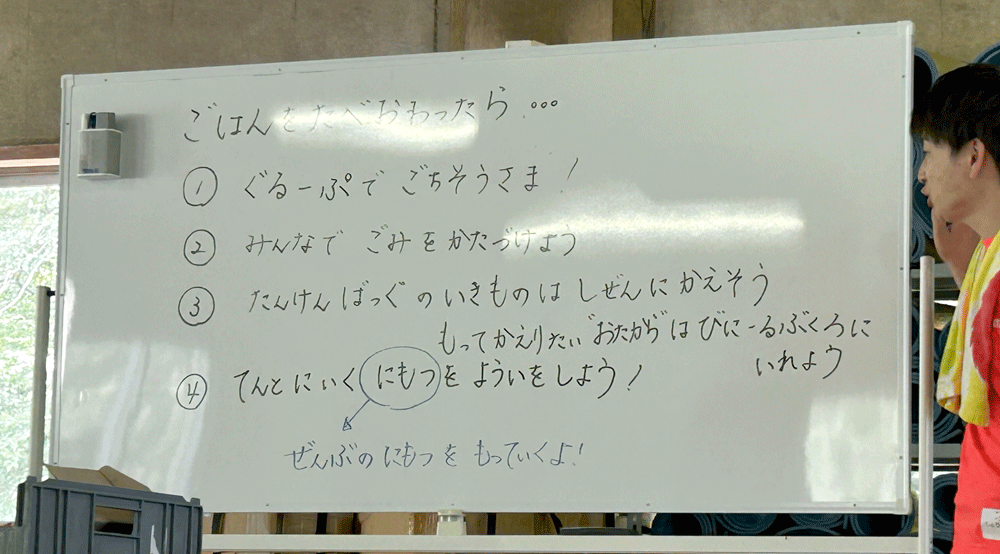 ごはんをたべおわったら...
① ぐるーぷで ごちそうさま!
② みんなで ごみを かたづけよう
③ たんけんばっぐの いきものは しぜんに かえそう
もってかえりたい"おたから"は びにーるぶくろに
いれよう
④ てんとに いく にもつを よういをしよう!
ぜんぶの にもつを もっていくよ!